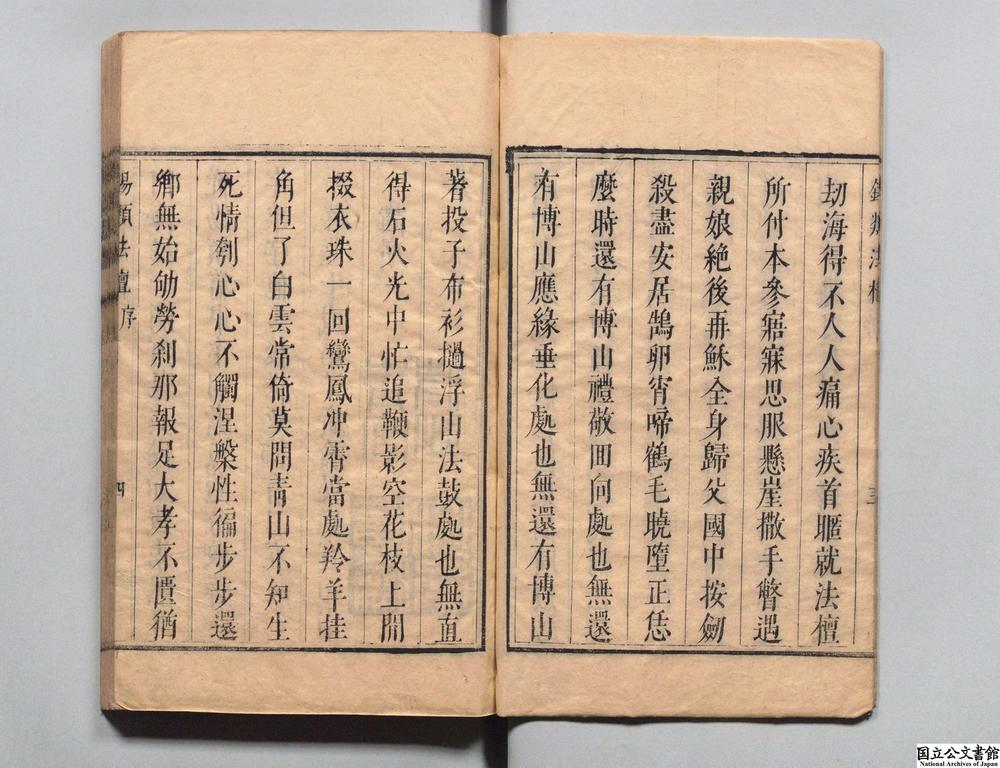 劫海得不人人痛心疾首㽸就法檀
所付本參寤寐思服懸崖撒手瞥遇
親娘絕後再穌全身歸父國中按劒
殺盡安居鵠卵宵啼鶴毛曉墮正恁
麼時還有博山禮敬囬向處也無還
有博山應緣垂化處也無還有博山
著投子布衫撾浮山法鼓處也無直
得石火光中忙追鞭影空花枝上閒
掇衣珠一回鸞鳳冲霄當處羚羊挂
角但了白雲常倚莫問青山不知生
死情刳心心不觸涅槃性徧步步還
鄉無始劬勞刹那報足大孝不匱猶
法檀序
四
国立公文書館
National Archives of Japan